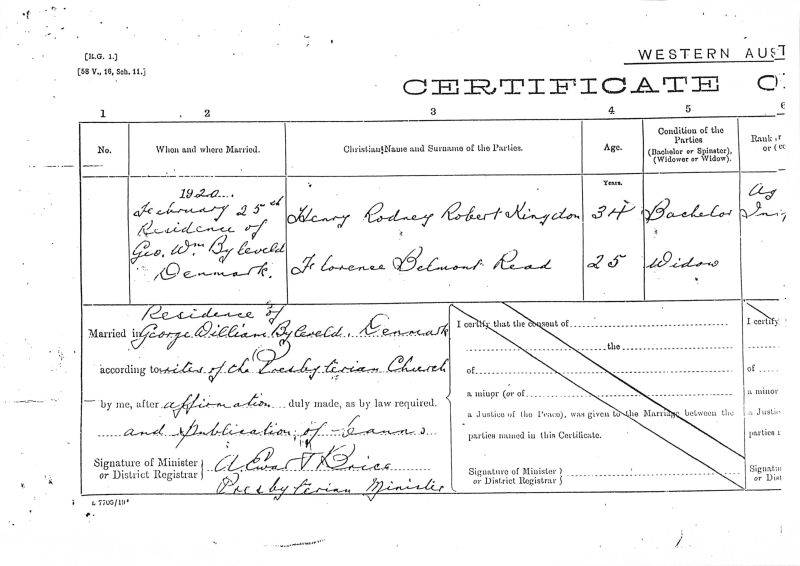 [R.G. 1.]
[58 V., 16, Sch. 11.]
WESTERN AUST
CERTIFICATE O
1 2 3 4 5 6
No. When and where Married. Christian Name and Surname of the Parties. Age. Condition of the Parties (Bachelor or Spinster), (Widower or Widow). Rank or
Years.
1920
February 25th
Residence of
Geo. Wm Byleveld
Denmark.
Henry Rodney Robert Kingdon 34 Bachelor Ag
Florence Belmont Read 25 Widow
Residence of
Married in George William Byleveld. Denmark
according to rites of the Presbyterian Church
by me, after affirmation duly made, as by law required.
and publication of
Signature of Minister
or District Registrar
Presbyterian Minister
I certify that the consent of
the
of
a minor (or of
a Justice of the Peace), was given to the Marriage between the
parties named in this Certificate.
Signature of Minister
or District Registrar
I certify
of
a minor
a Justic
parties
Signatu
or Dist